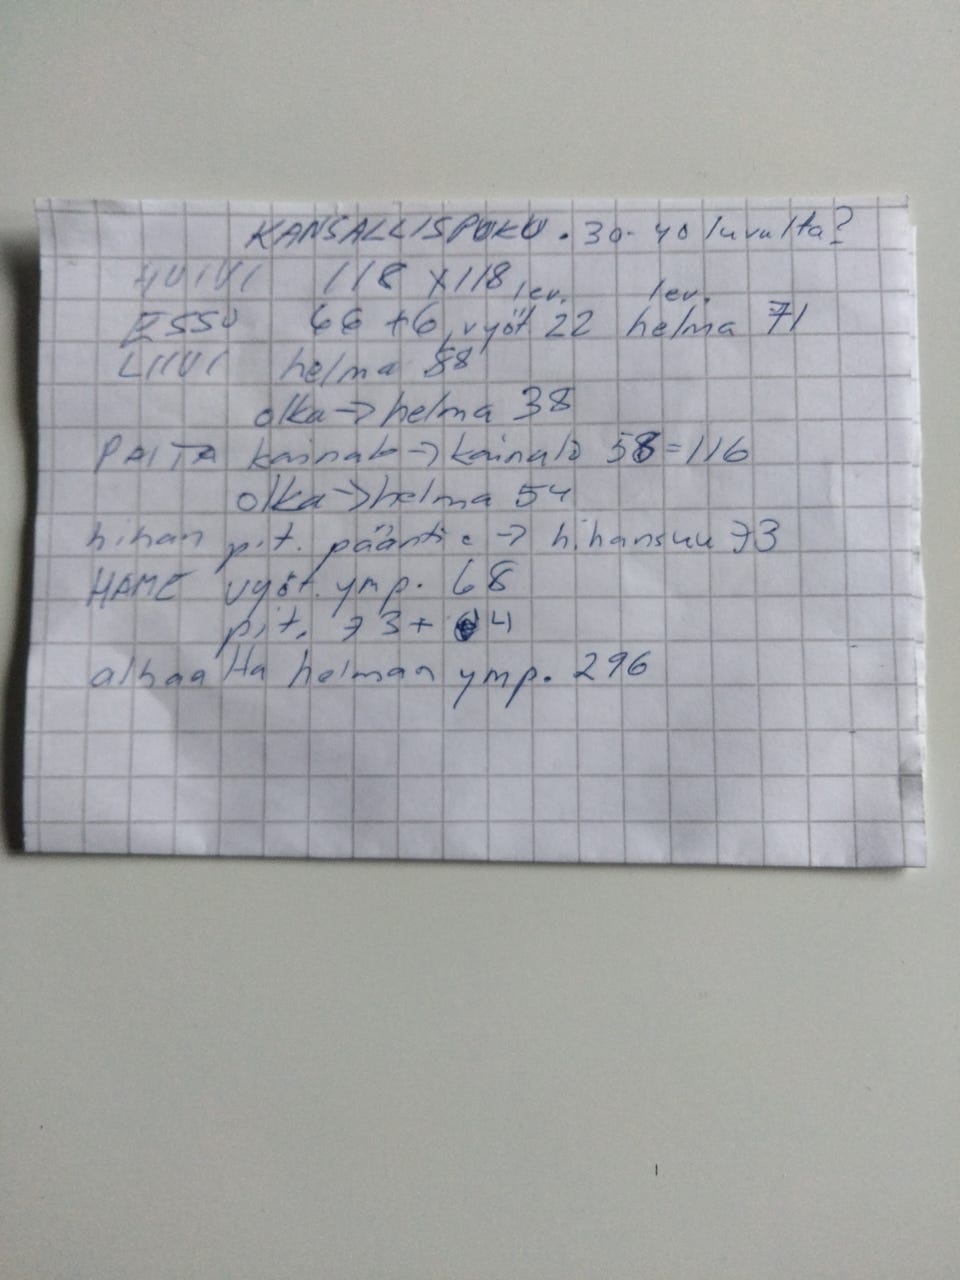 KANSALLISPUKU. 30-40 luvulta?
HUIVI 118 x 118
ESSU 66 + 6, vyöt lev. 22 helma lev. 71
LIIVI helma 88
olka → helma 38
PAITA kainalo → kainalo 58 = 116
olka → helma 54
hihan pit. pääntie → hihansuu 73
HAME vyöt. ymp. 68
pit. 73 + 4
alhaalta helman ymp. 296